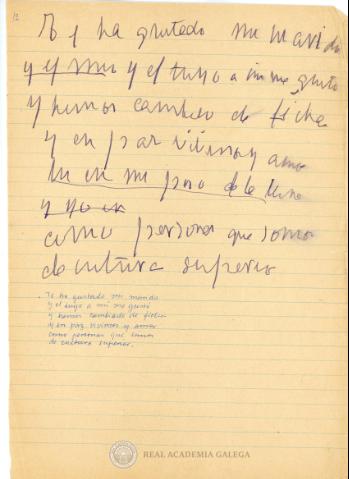 12
Te ha gustado mi marido
y el mio y el tuyo a mi me gusto
y hemos cambiado de ficha
y en paz vivimos y amor
tu en mi piso de la
y yo en
como personas que somos
de cultura superior
Te ha gustado mi marido
y el suyo a mi me gustó
y hemos cambiado de ficha
y en paz vivimos y amor
como personas que somos
de cultura superior.
REAL ACADEMIA GALEGA